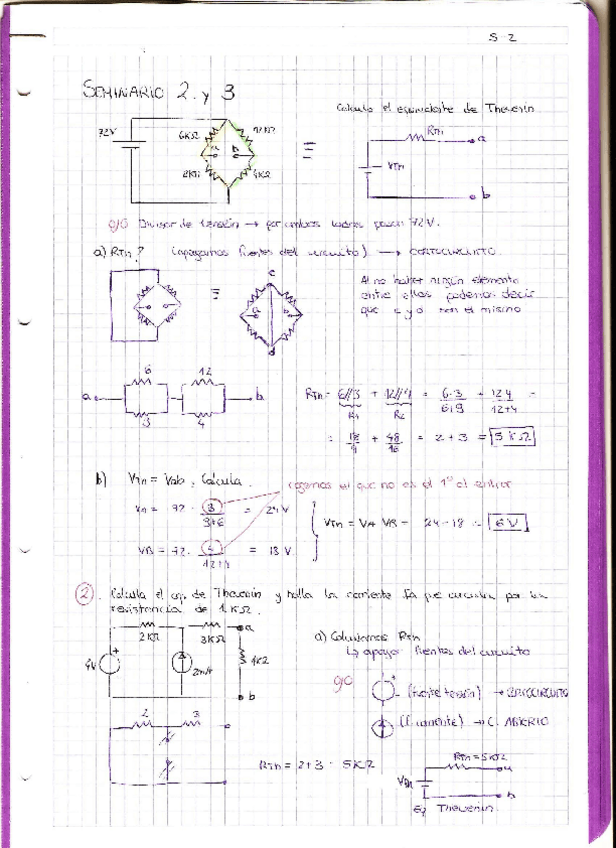 S-2
SEMINARIO 2 y 3
Calcula el equivalente de Thevenin
72V
6KΩ
12KΩ
a
b
4KΩ
=
RTh
a
VTh
b
ojo Divisor de tensión → por ambos lados pasan 72V.
a) RTh? (apagamos fuentes del circuito) → CORTOCIRCUITO.
=
c
d
Al no haber ningún elemento
entre ellos podemos decir
que c y d son el mismo
6 12
a b
3 4
RTh = 6//3 + 12//4 = 6·3 + 12·4 =
R1 R2 12+4
= 18 + 48 = 2 + 3 = 5 KΩ
b) VTh = Vab, Calcula.
cogemos el que no es el 1º al entrar
VA = 72 · 3 = 24 V
3+6
VTh = VA VB = 24-18 = 6V
VB = 72 · 4 = 18 V
12+4
2. Calcula el eq. de Thevenin y halla la corriente que circula por la
resistencia de 1KΩ.
2KΩ
3KΩ
a
2mA
b
a) Calculamos RTh
↳ apagar fuentes del circuito
ojo
(fuente tensión) → CORTOCIRCUITO
(F. corriente) → C. ABIERTO
2 3
RTh = 2+3 = 5KΩ
RTh = 5KΩ
a
VTh
b
Eq Thevenin